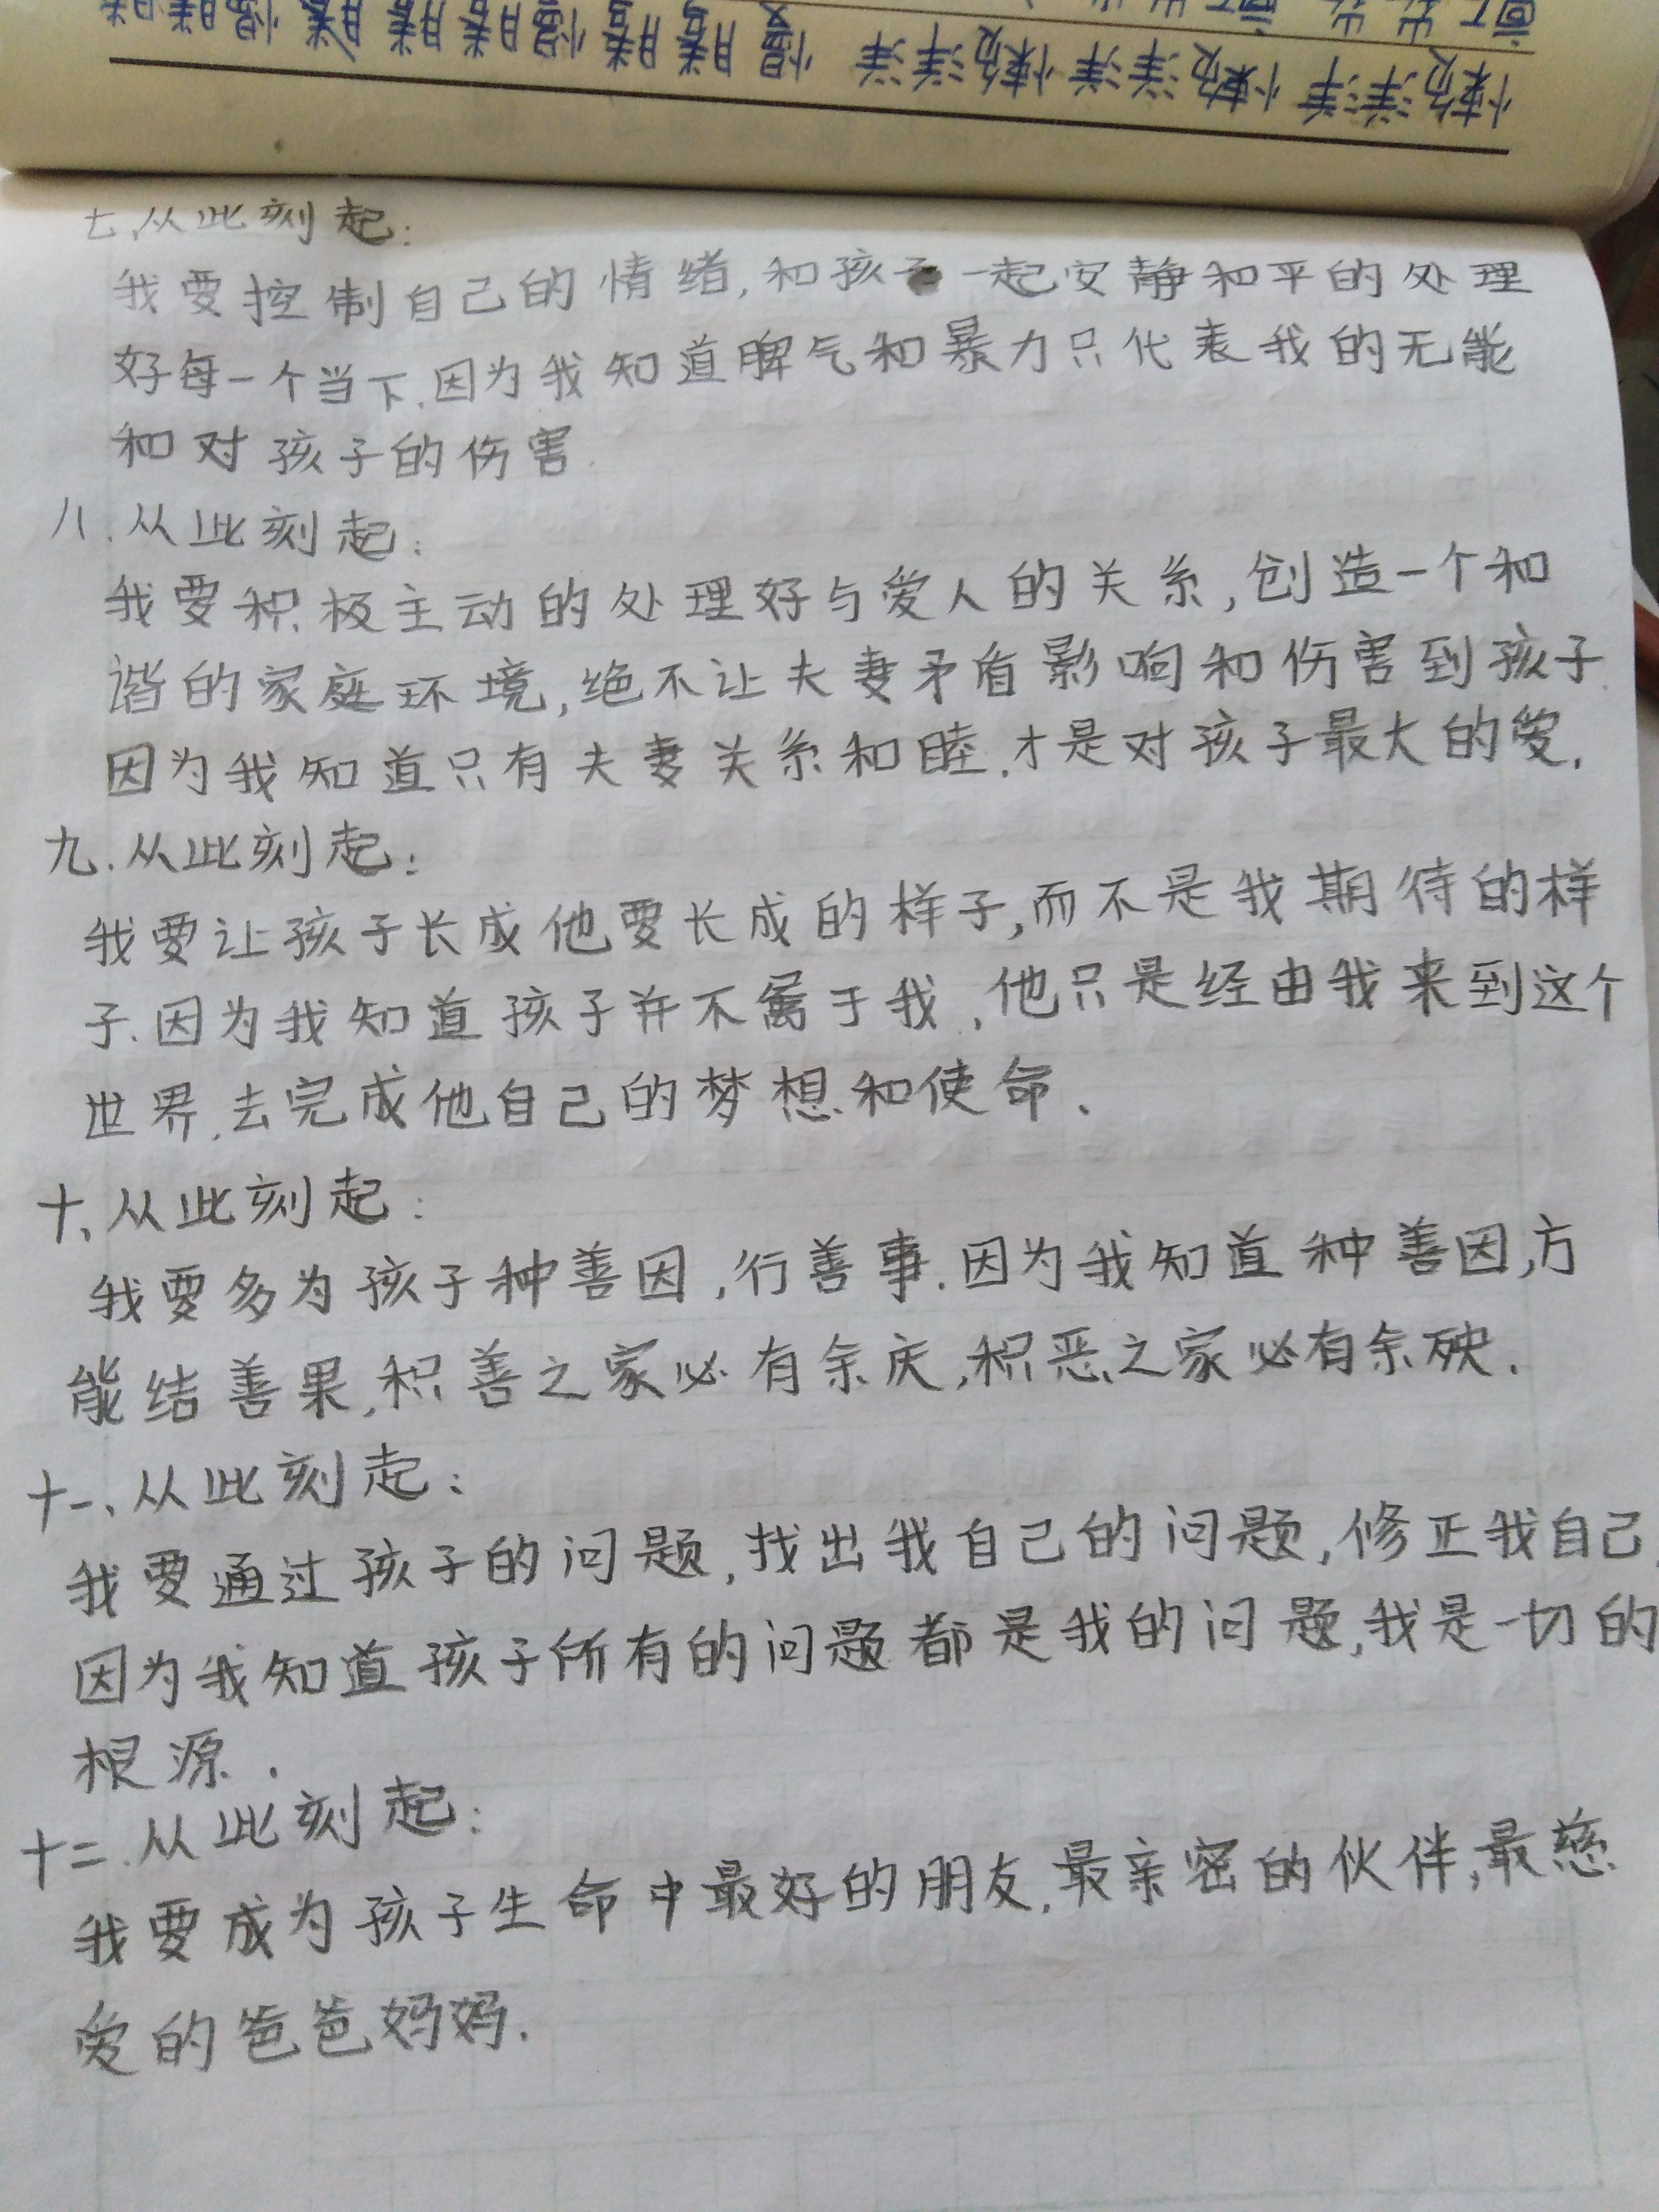 七、从此刻起:
我要控制自己的情绪,和孩子一起安静和平的处理
好每一个当下.因为我知道脾气和暴力只代表我的无能
和对孩子的伤害.
八.从此刻起:
我要积极主动的处理好与爱人的关系,创造一个和
谐的家庭环境,绝不让夫妻矛盾影响和伤害到孩子.
因为我知道只有夫妻关系和睦.才是对孩子最大的爱.
九.从此刻起:
我要让孩子长成他要长成的样子,而不是我期待的样
子.因为我知道孩子并不属于我.他只是经由我来到这个
世界.去完成他自己的梦想和使命.
十、从此刻起:
我要多为孩子种善因,行善事.因为我知道种善因,方
能结善果,积善之家必有余庆,积恶之家必有余殃.
十一、从此刻起:
我要通过孩子的问题,找出我自己的问题,修正我自己.
因为我知道孩子所有的问题都是我的问题,我是一切的
根源.
十二.从此刻起:
我要成为孩子生命中最好的朋友.最亲密的伙伴,最慈
爱的爸爸妈妈.